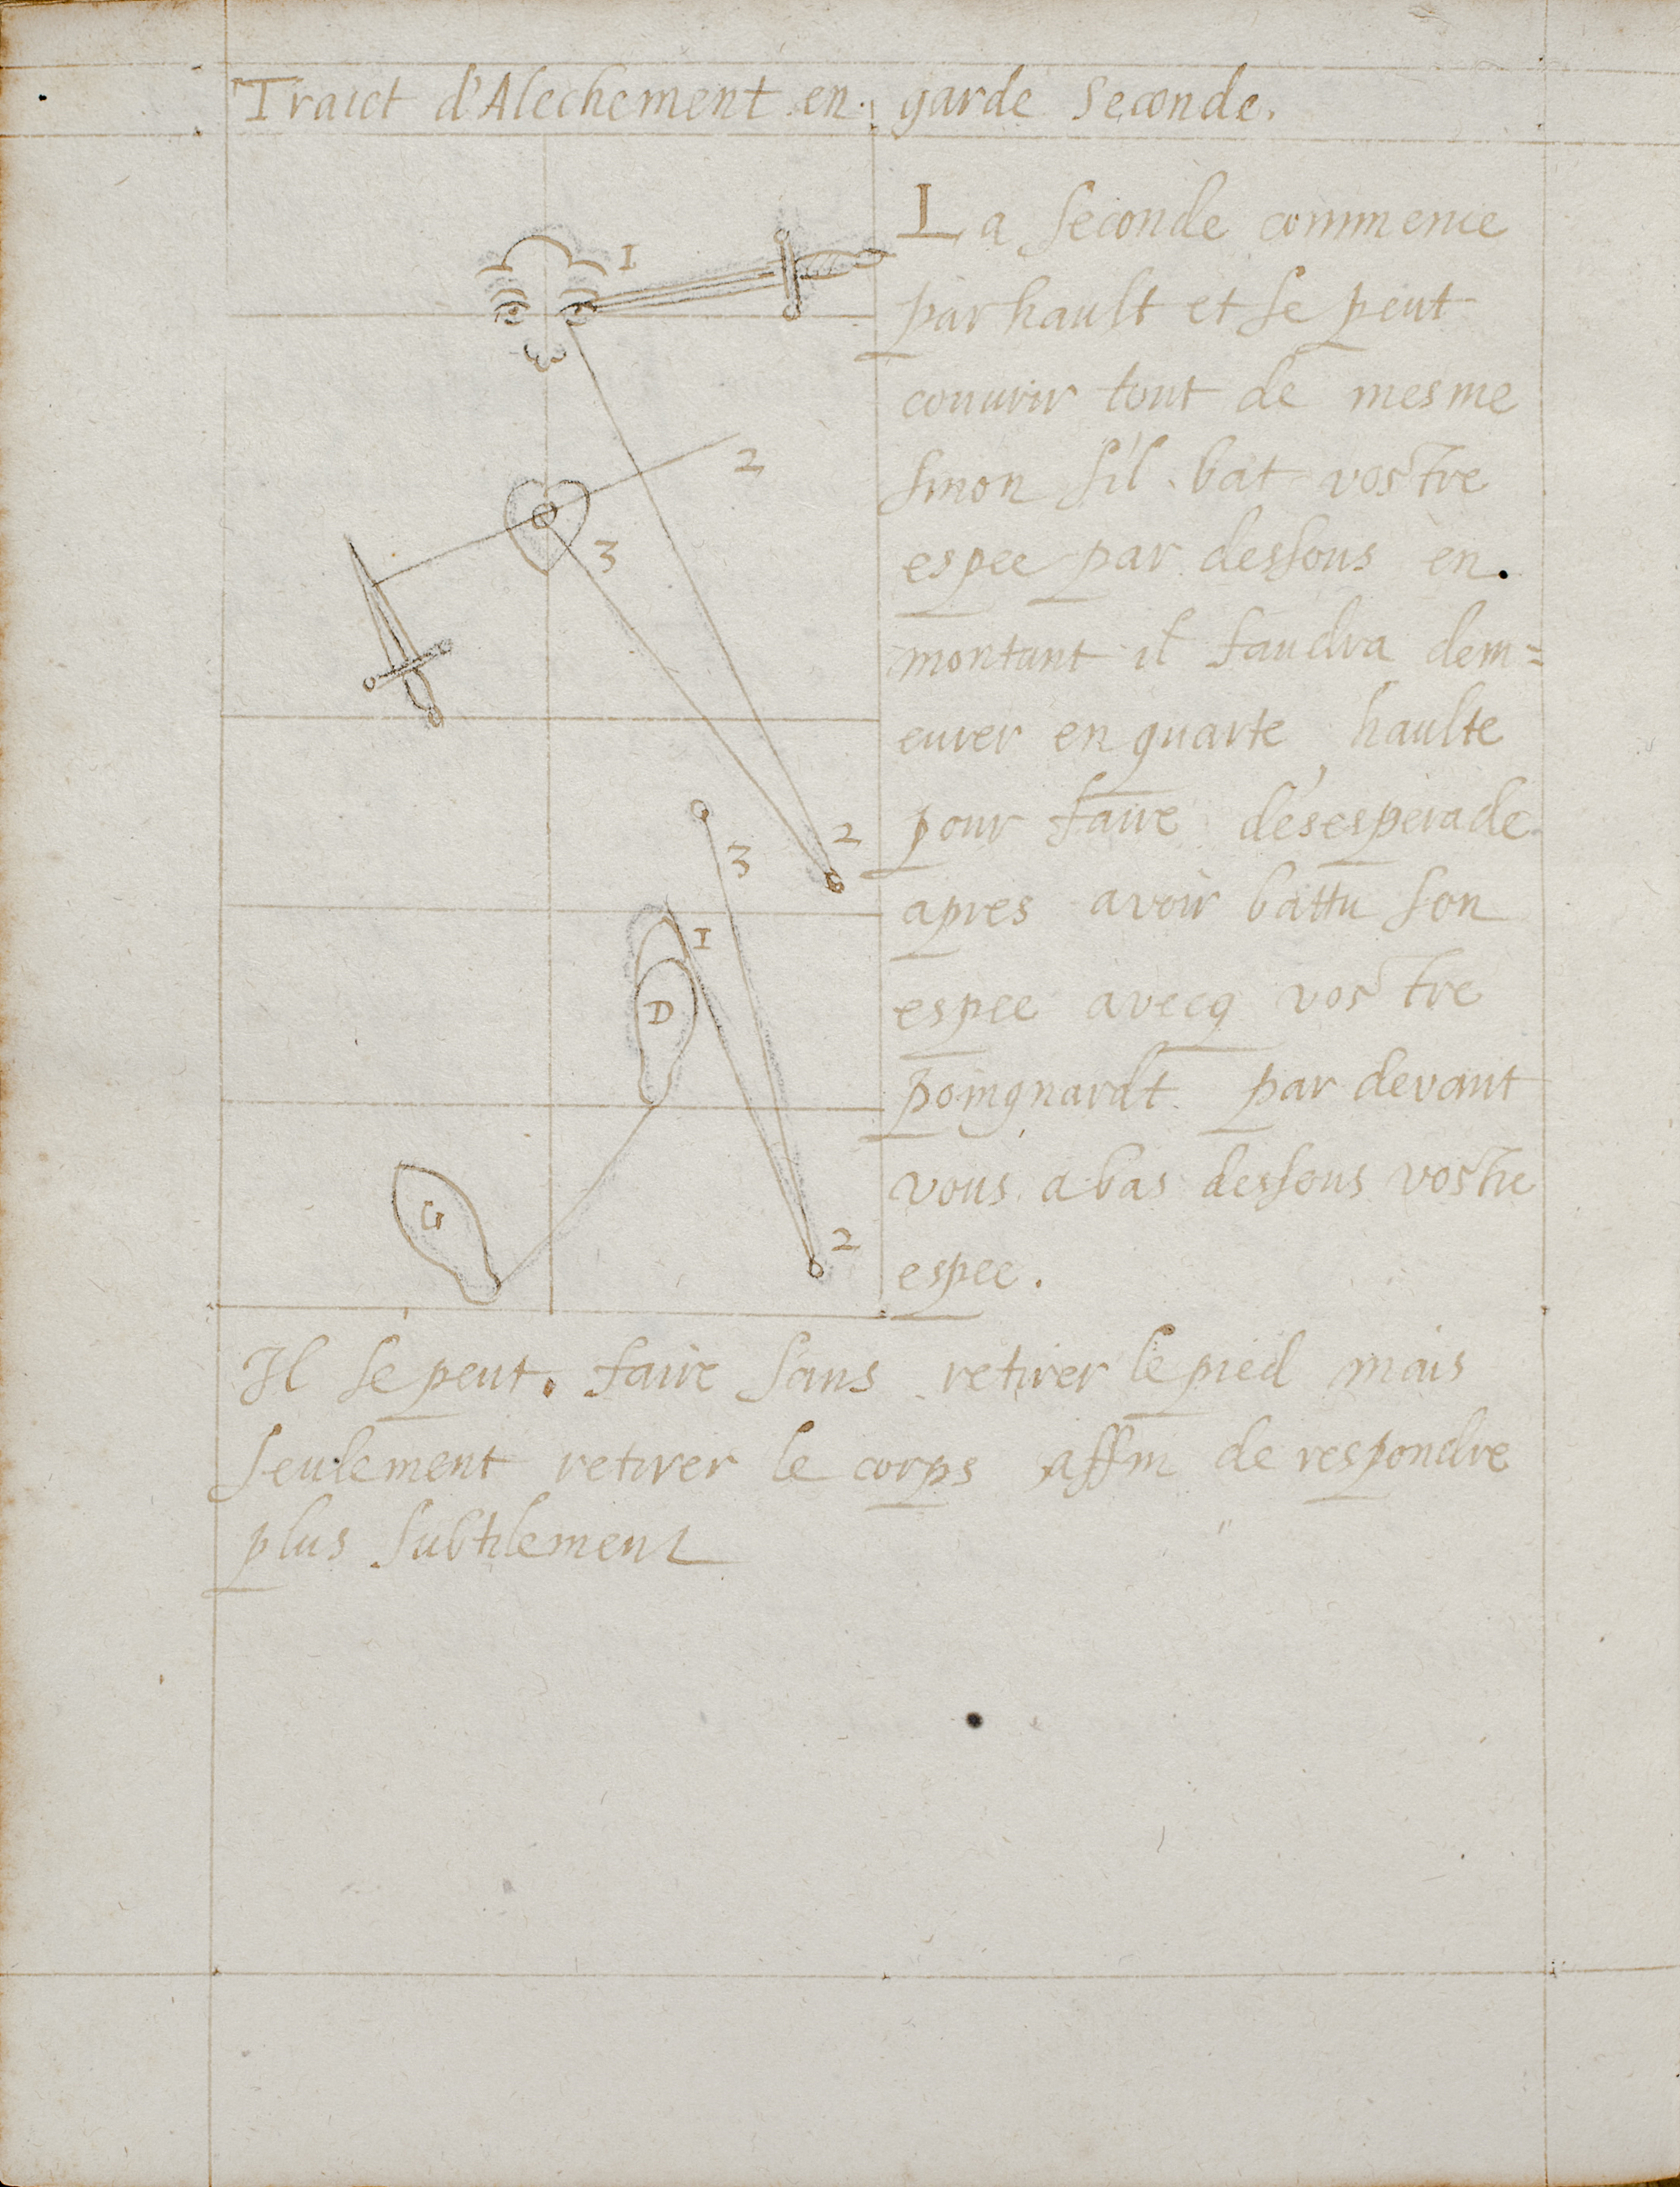 Traict d'Alechement en garde Seconde.
La seconde commence
par hault et se peut
couurir tout de mesme
sinon s'il bat vostre
espee par dessous en
montant il faudra dem=
eurer en quarte haulte
pour faire désesperade
apres avoir battu son
espee avecq vostre
poingnardt par devant
vous abas dessous vostre
espee.
Il se peut faire sans retirer le pied mais
seulement retirer le corps affin de respondre
plus subtilement
1
2
3
2
3
1
D
G
2